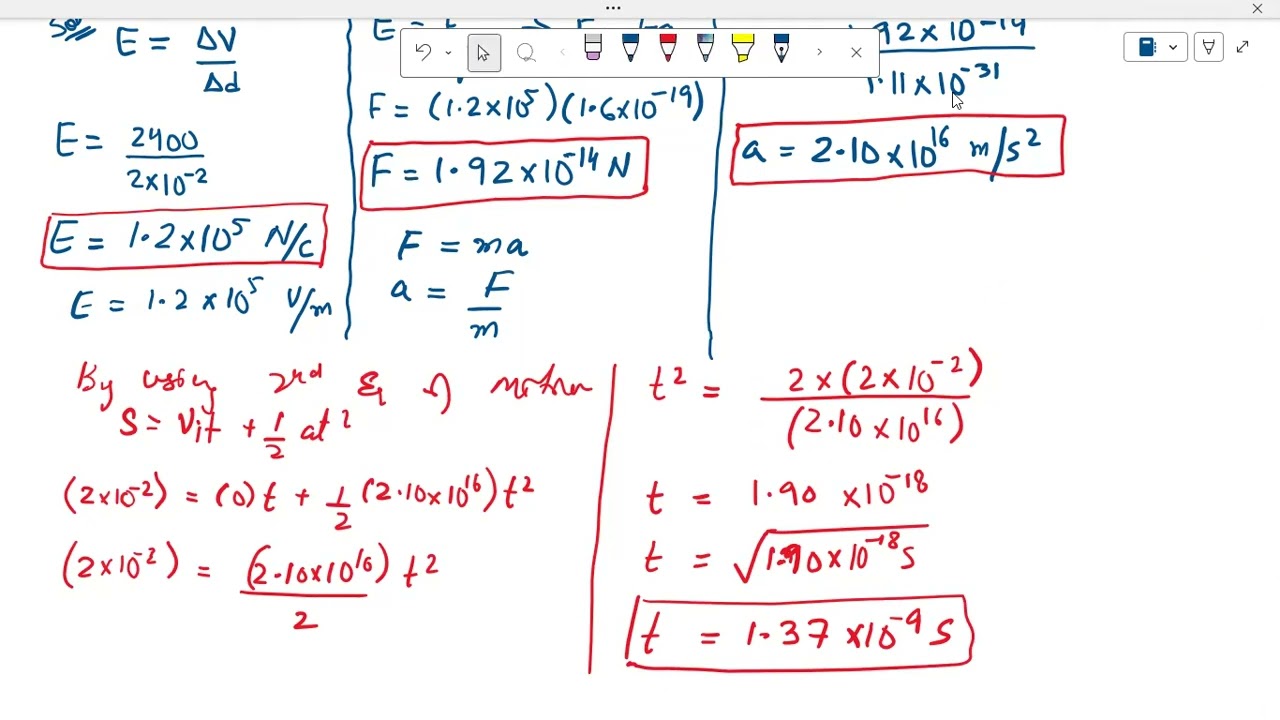 Sol
E = ΔV
Δd
E = 2400
2×10⁻²
E = 1.2×10⁵ N/C
E = 1.2×10⁵ V/m
F = (1.2×10⁵)(1.6×10⁻¹⁹)
F = 1.92×10⁻¹⁴ N
F = ma
a = F
m
92×10⁻¹⁴
1.11×10⁻³¹
a = 2.10×10¹⁶ m/s²
By using 2nd Eq of motion
S = Vit + 1/2 at²
(2×10⁻²) = (0)t + 1/2 (2.10×10¹⁶)t²
(2×10⁻²) = (2.10×10¹⁶) t²
2
t² = 2×(2×10⁻²)
(2.10×10¹⁶)
t = 1.90 ×10⁻¹⁸
t = √1.90×10⁻¹⁸ s
t = 1.37×10⁻⁹ s